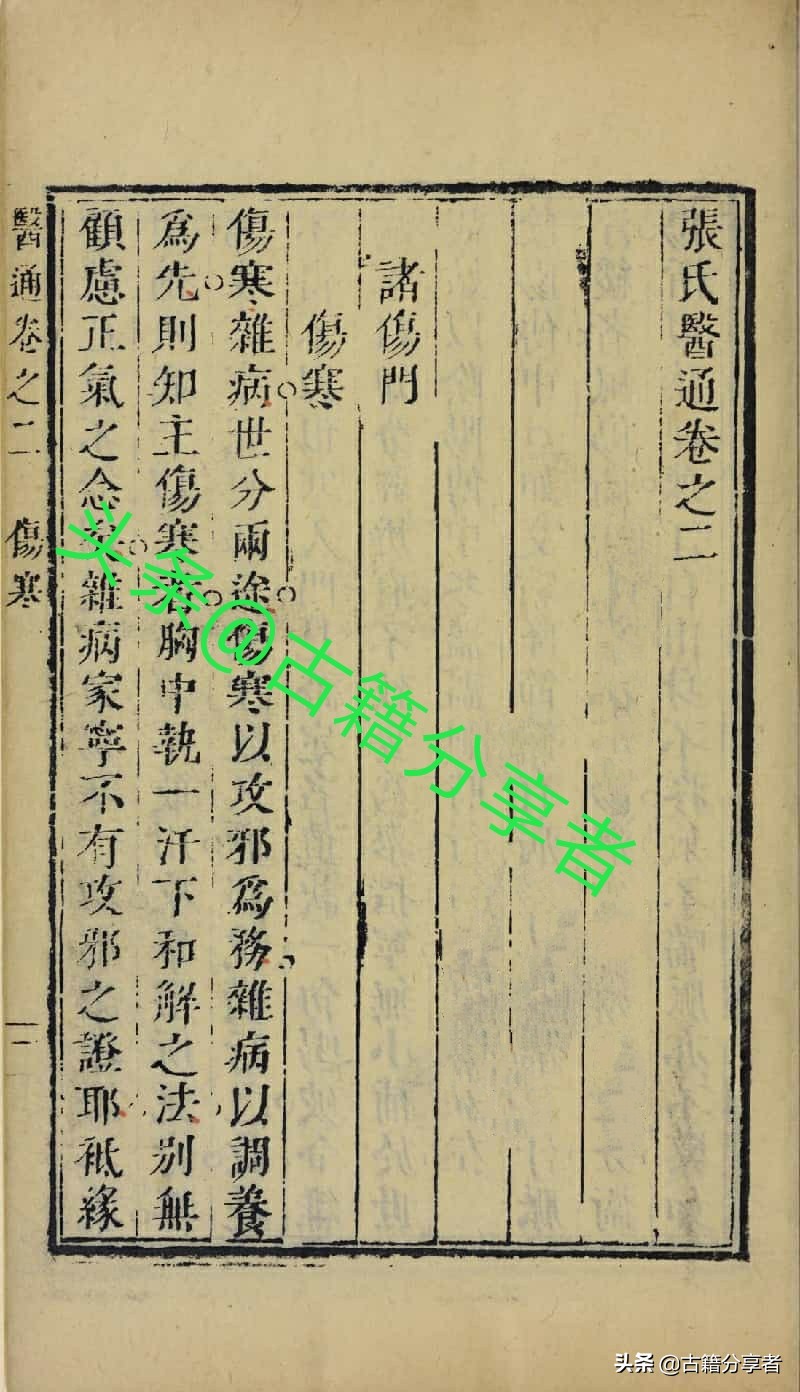 張氏醫通卷之二
諸傷門
傷寒
傷寒雜病世分兩途傷寒以攻邪爲務雜病以調養
爲先則知主傷寒者胸中執一汗下和解之法別無
顧慮正氣之念矣雜病家寧不有攻邪之證耶祗緣
醫通卷之二 傷寒 一
头条@古籍分享者
头条 @古籍分享者